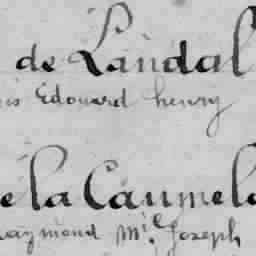 de Landal
Edouard henry
e la Caumel
Raymond Mie Joseph